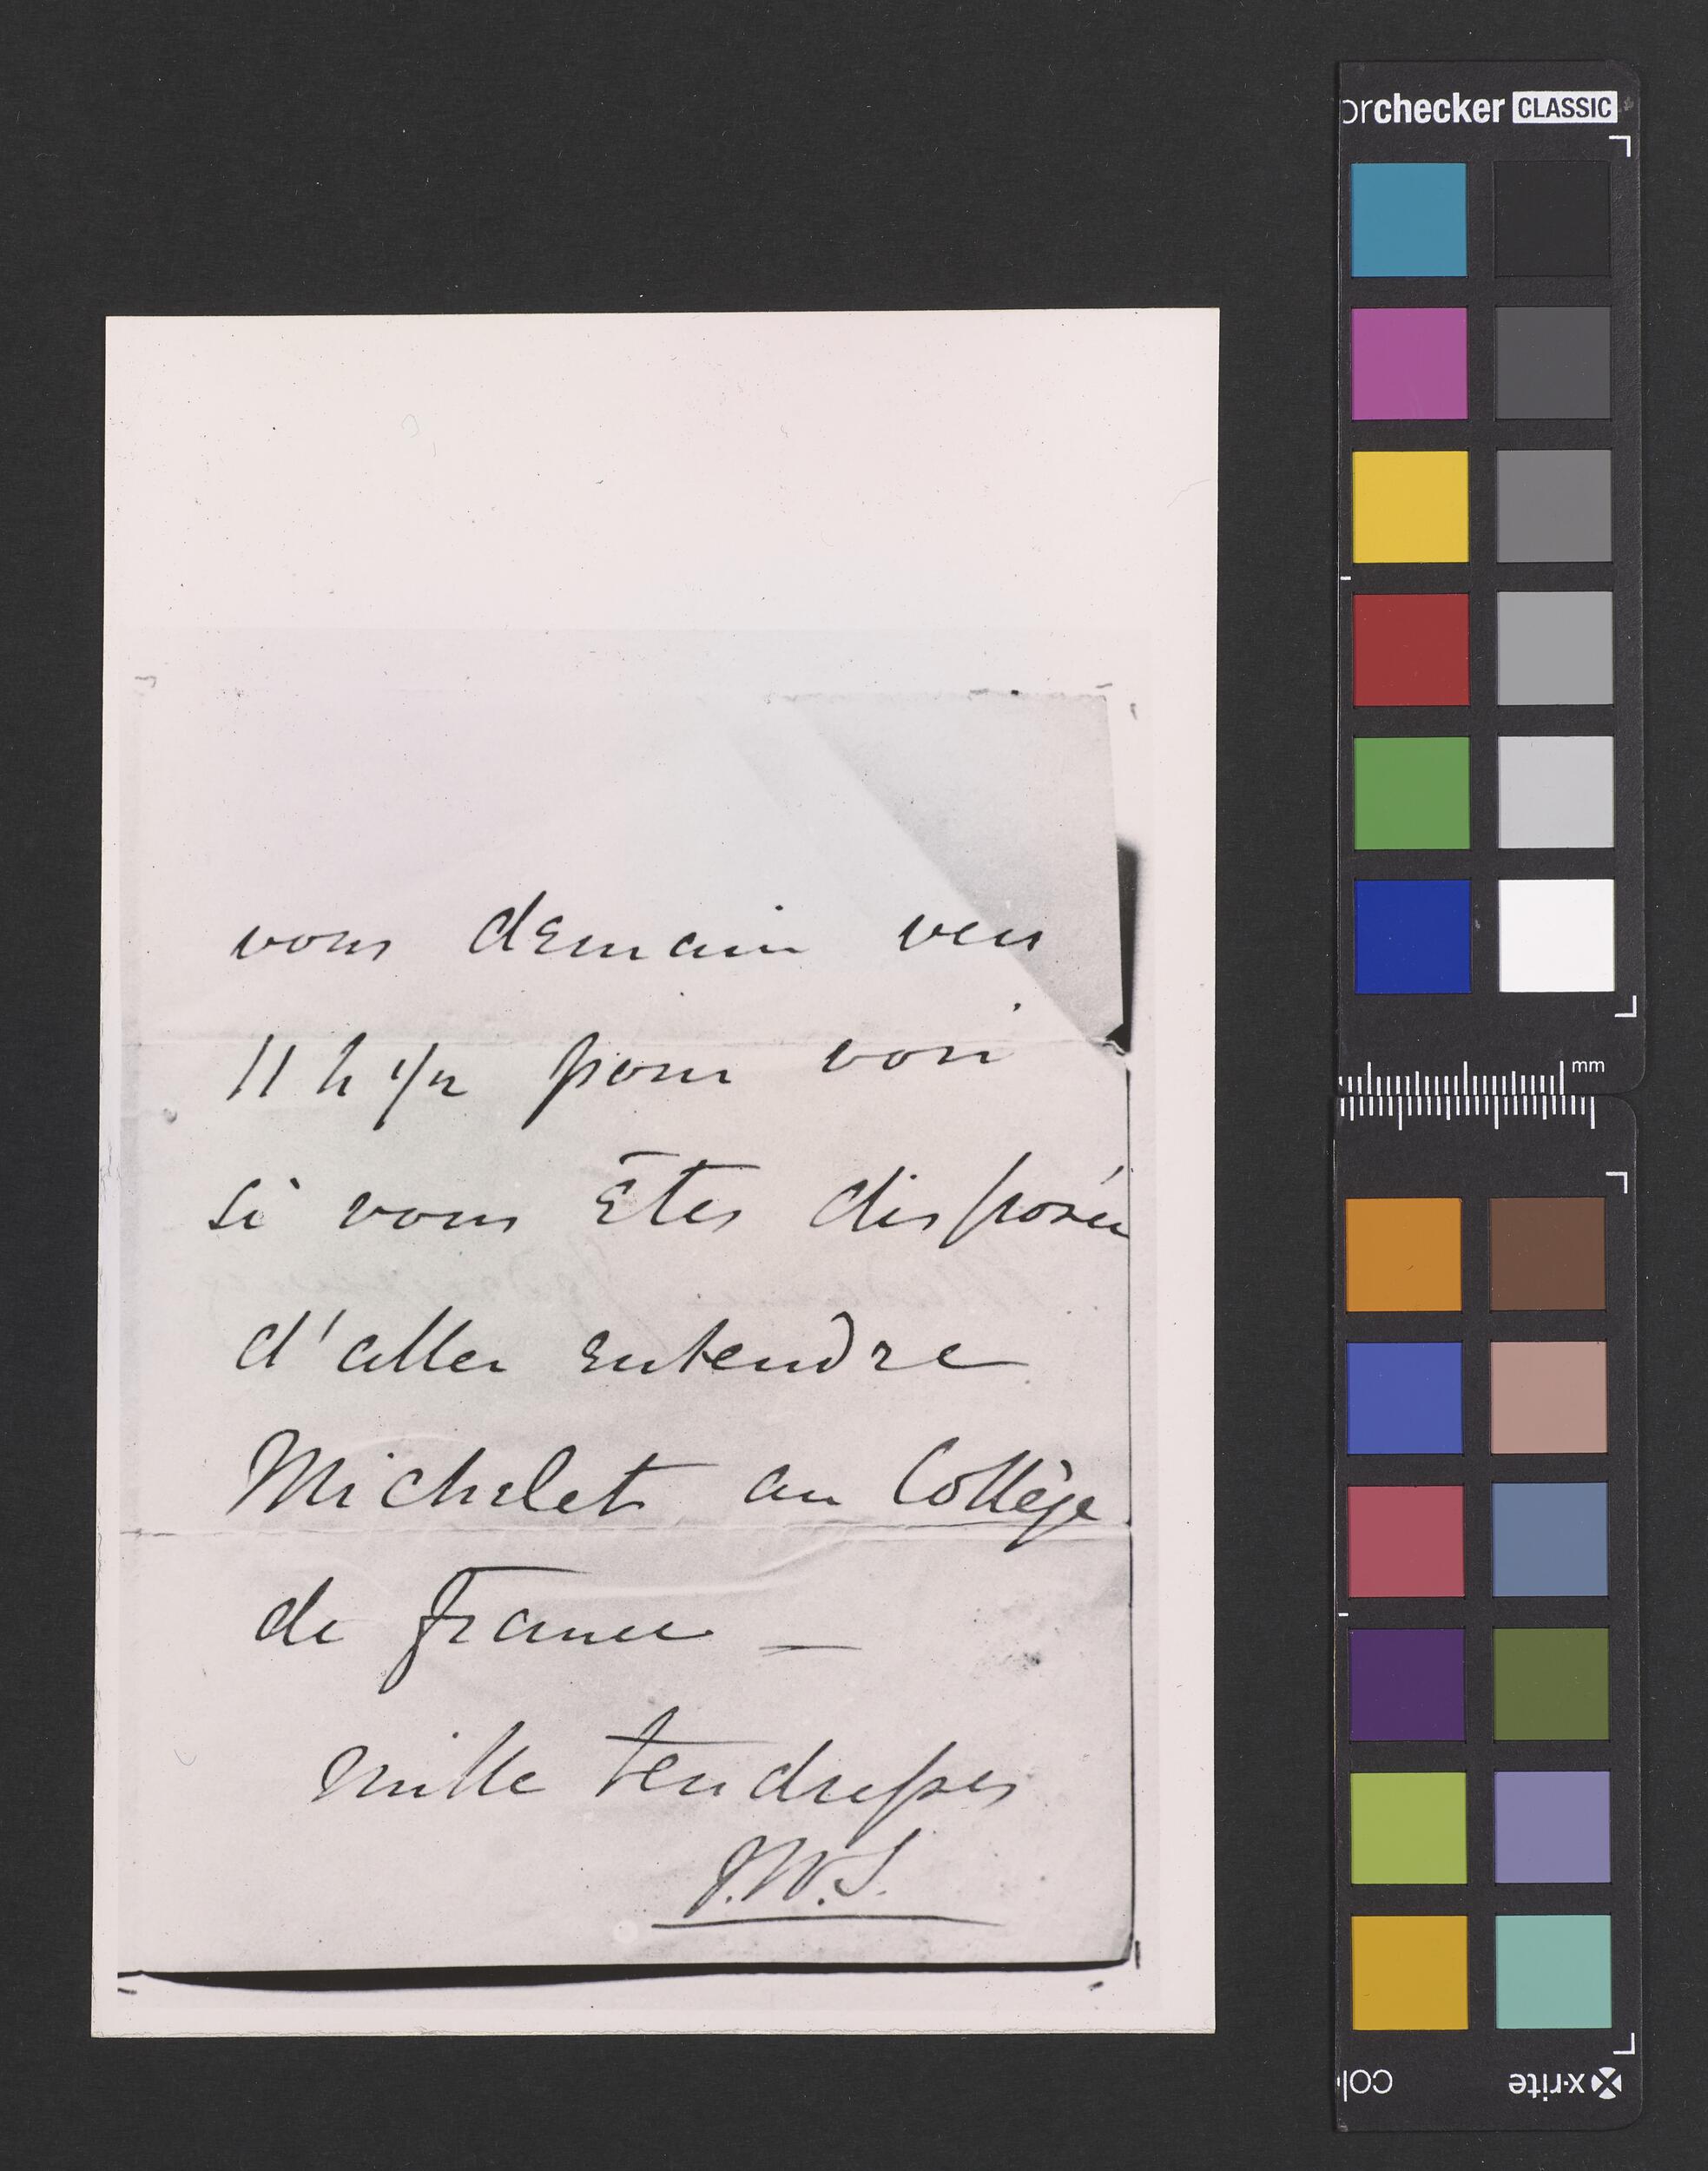 vous demain vers
11 h 1/2 pour voir
si vous êtes disposée
d'aller entendre
Michelet au Collège
de France —
mille tendresses
J.W.S.
orchecker CLASSIC
mm
x-rite
col